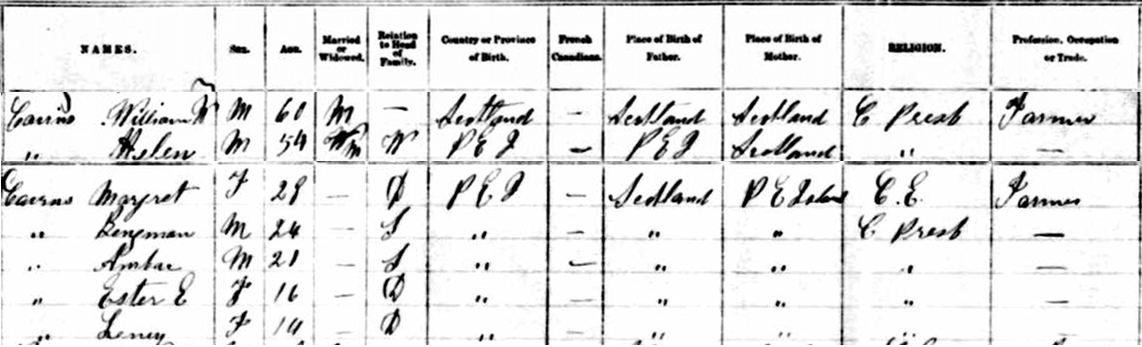 NAMES. Sex. Age. Married or Widowed. Relation to Head of Family. Country or Province of Birth. French Canadians. Place of Birth of Father. Place of Birth of Mother. RELIGION. Profession, Occupation or Trade.
Cairns William M 60 M — Scotland — Scotland Scotland C Presb Farmer
" Helen M 54 W P E I — P E I Scotland " —
Cairns Margret F 28 — D P E I — Scotland P E Island C. E. Farmer
" Bengman M 24 — S " — " " C Presb —
" M 21 — S " — " " " —
" Ester E F 16 — D " — " " " —
" F 14 — D " " " "